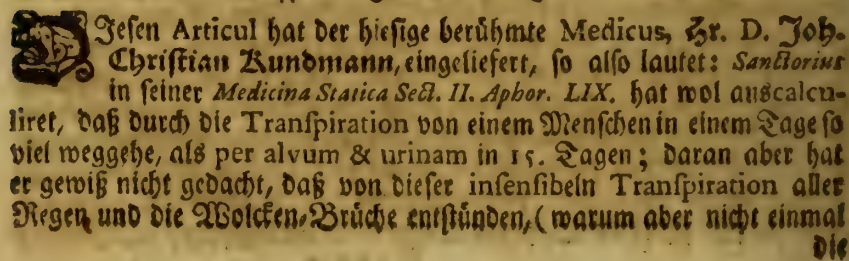 DJesen Articul hat der hiesige berühmte Medicus, Hr. D. Joh.
Christian Kundmann, eingeliefert, so also lautet: Sanctorius
in seiner Medicina Statica Sect. II. Aphor. LIX. hat wol auscalcu-
liret, daß durch die Transpiration von einem Menschen in einem Tage so
viel weggehe, als per alvum & urinam in 15. Tagen; daran aber hat
er gewiß nicht gedacht, daß von dieser insensibeln Transpiration aller
Regen und die Wolcken-Brüche entstünden, (warum aber nicht einmal
die